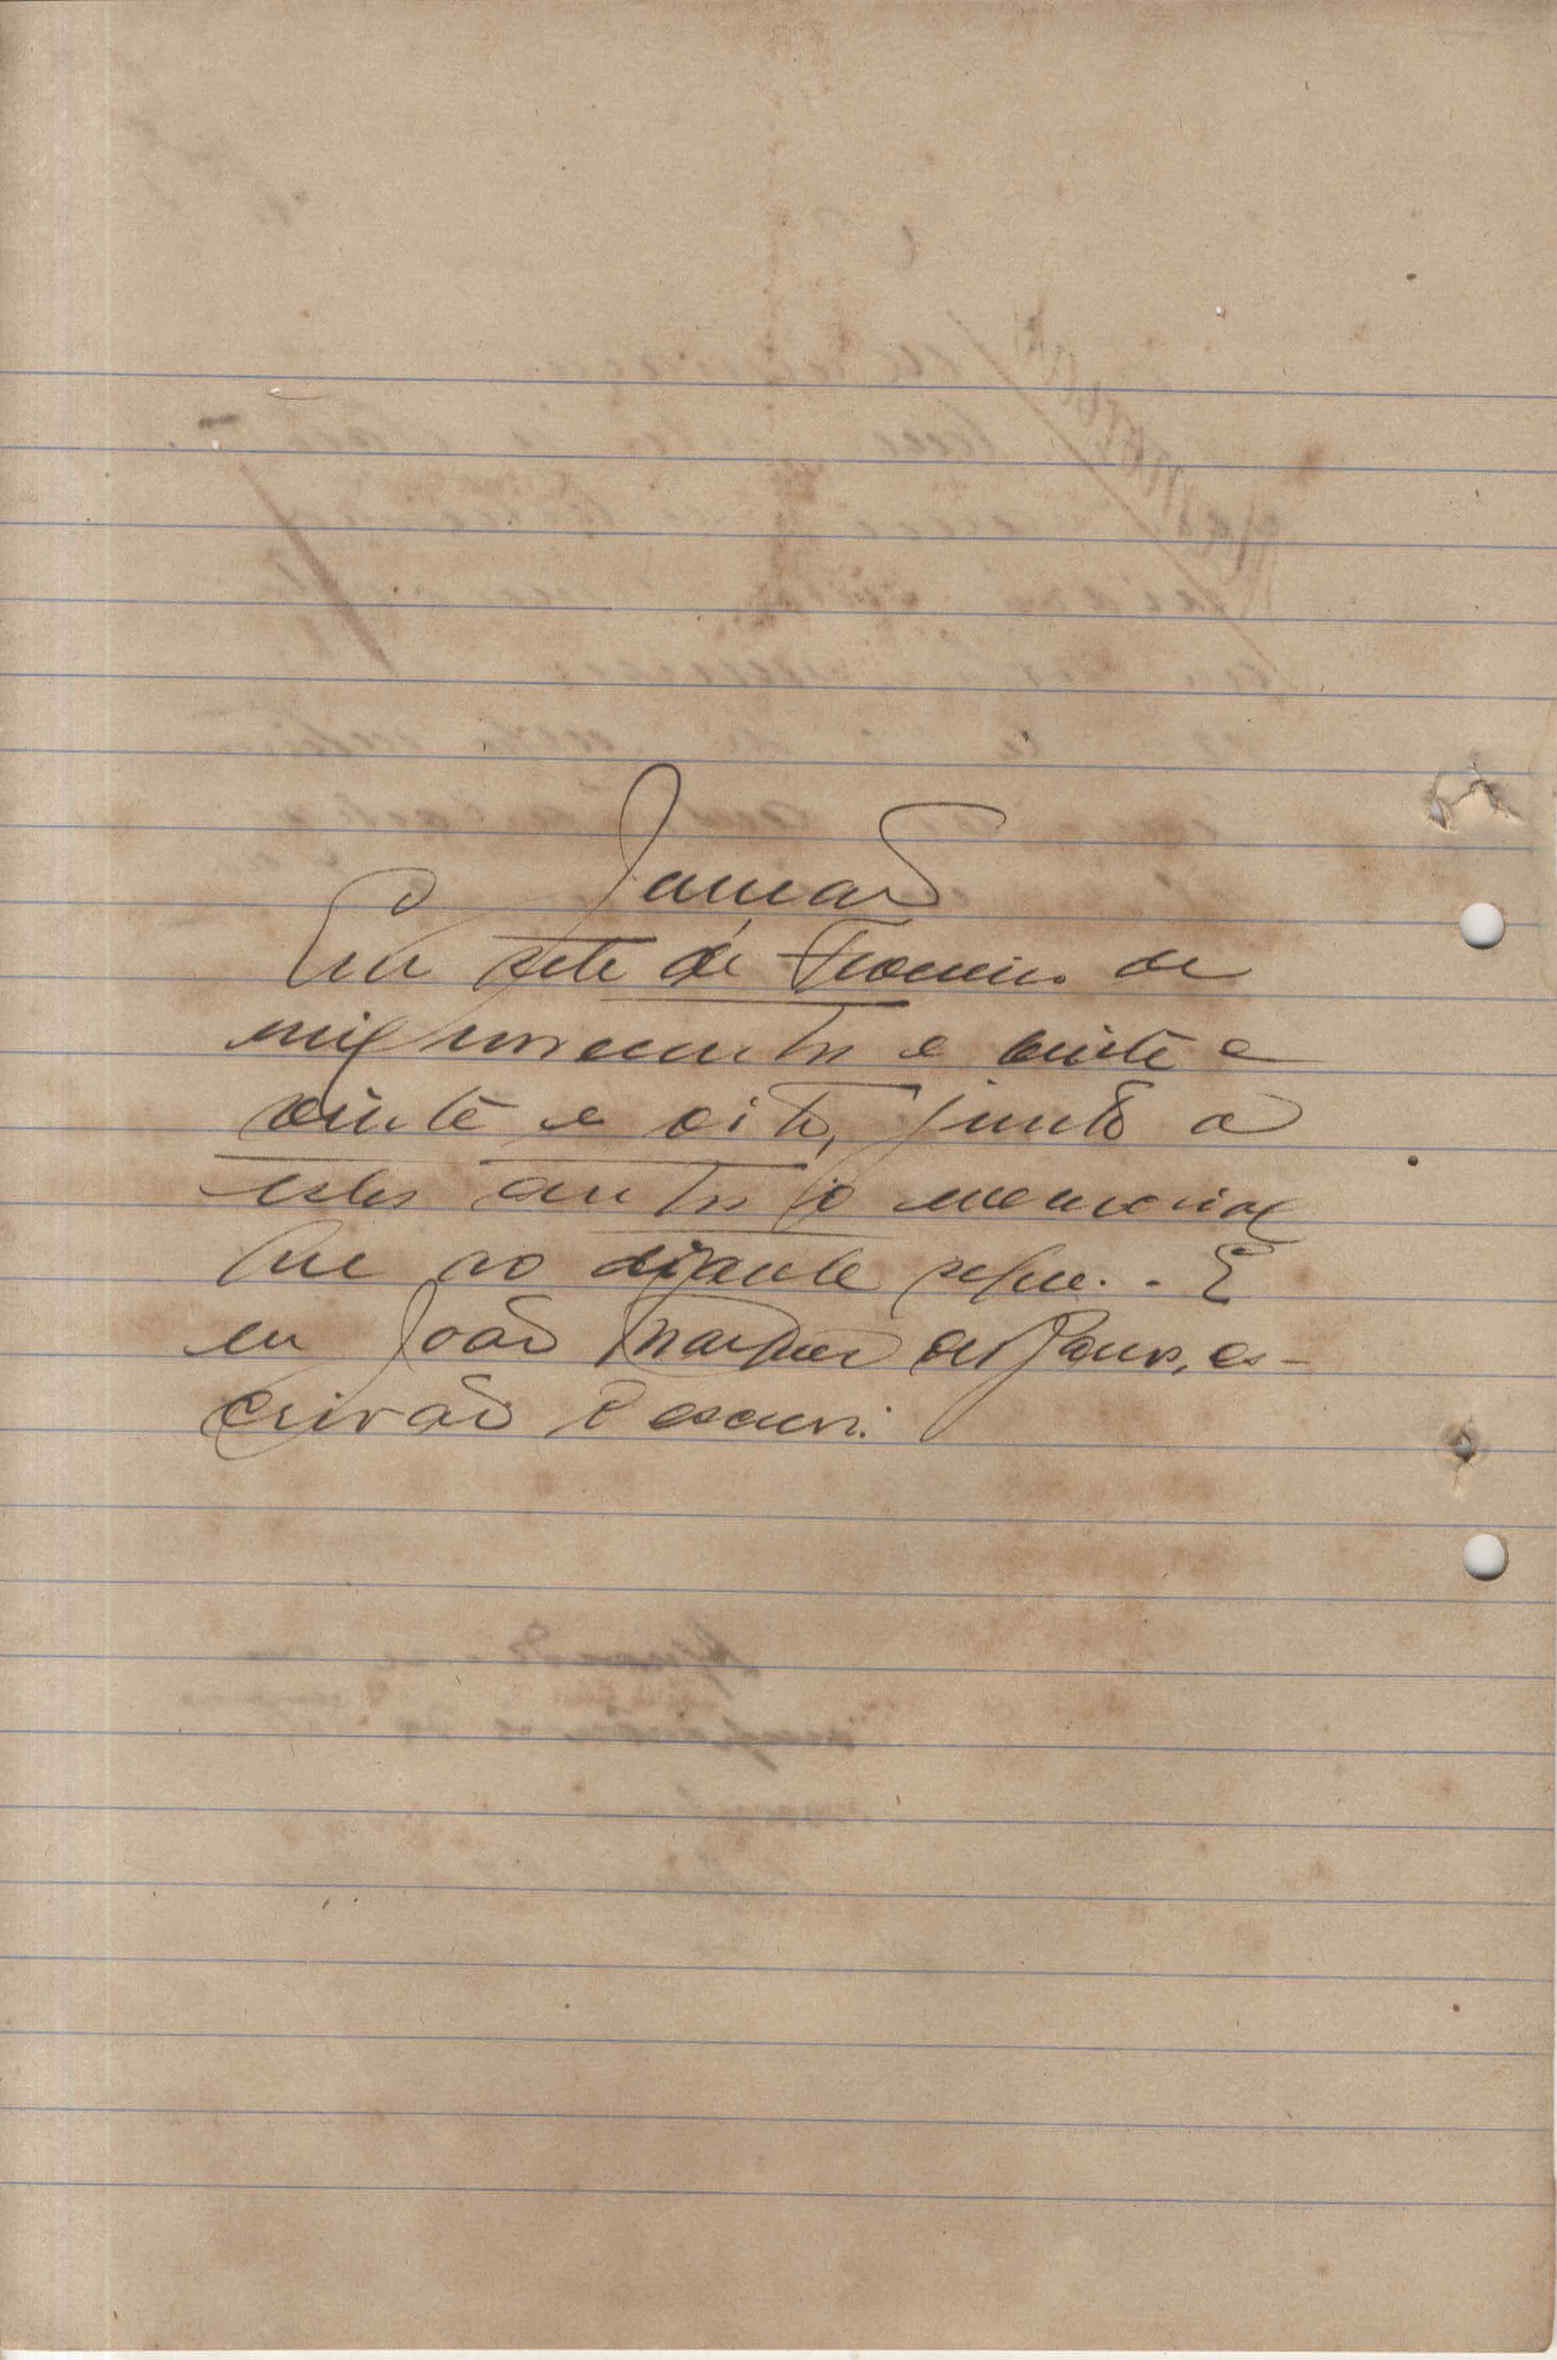 Juncção
Em sete de Fevereiro de
mil novecentos e vinte e
vinte e oito, junto a
estes autos o memorial
que ao diante segue. - E
eu João Marques de, es-
crivão o escrevi.